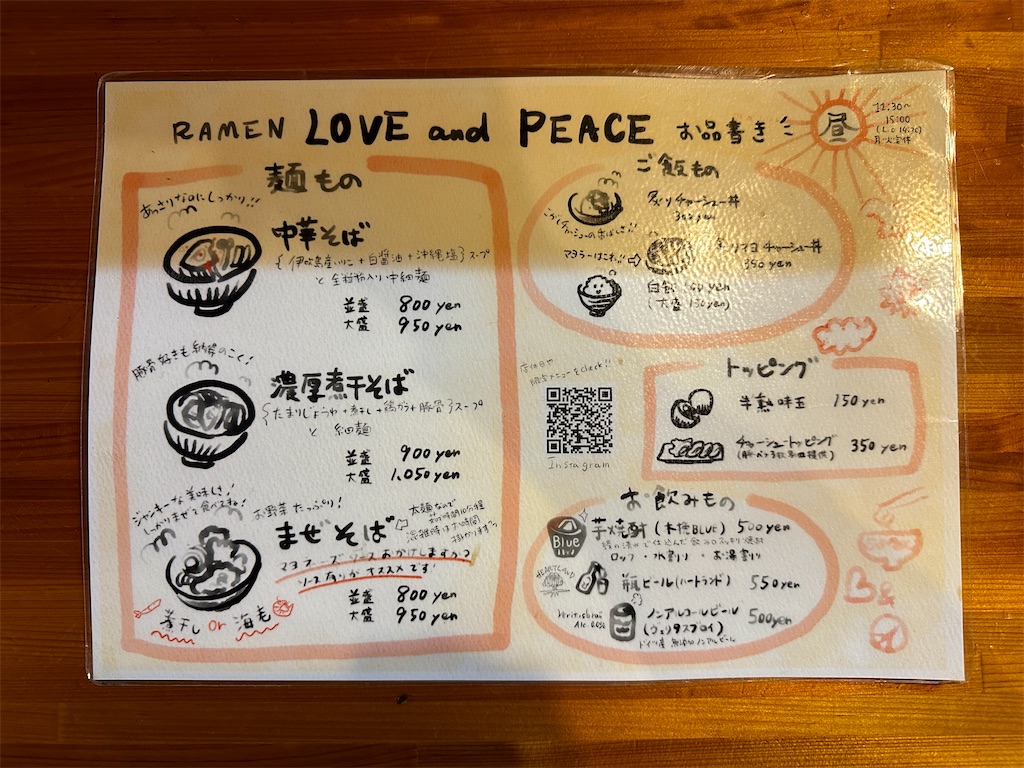 RAMEN LOVE and PEACE お品書き
昼
11:30〜
15:00
(L.o 14:30)
月・火定休
麺もの
あっさりなのにしっかり!!
中華そば
{伊吹島産いりこ+白醤油+沖縄塩}スープ
と全粒粉入り中細麺
並盛 800 yen
大盛 950 yen
豚骨好きも納得のこく!
濃厚煮干そば
{たまりじょうゆ+煮干し+鶏ガラ+豚骨}スープ
と 細麺
並盛 900 yen
大盛 1,050 yen
ジャンキーな美味しさ!
しっかりまぜて食べてね!
お野菜たっぷり!
まぜそば
太麺なので
茹で時間10分程
混雑時はお時間
掛かります
マヨネーズソースおかけしますか?
ソース有りがオススメです!
並盛 800 yen
大盛 950 yen
煮干し or 海老
ご飯もの
炙りチャーシュー丼
350 yen
こがしチャーシューの香ばしさ!!
マヨラーはこれ!!
炙りマヨチャーシュー丼
350 yen
白飯
(大盛 150 yen)
店休日や
限定メニューをcheck!!
Instagram
トッピング
半熟味玉 150 yen
チャーシュートッピング 350 yen
お飲みもの
Blue
芋焼酎(木桶BLUE) 500 yen
ロック・水割り・お湯割り
HEARTLAND
瓶ビール(ハートランド) 550 yen
Veritasbräu
Alc. 0.0%
ノンアルコールビール 500 yen
(ヴェリタスブロイ)
ドイツ産 無添加ノンアルビール